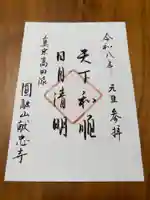 令和八年 元旦參拝
天下和順
日月清明
真宗高田派
圓融山献忠寺